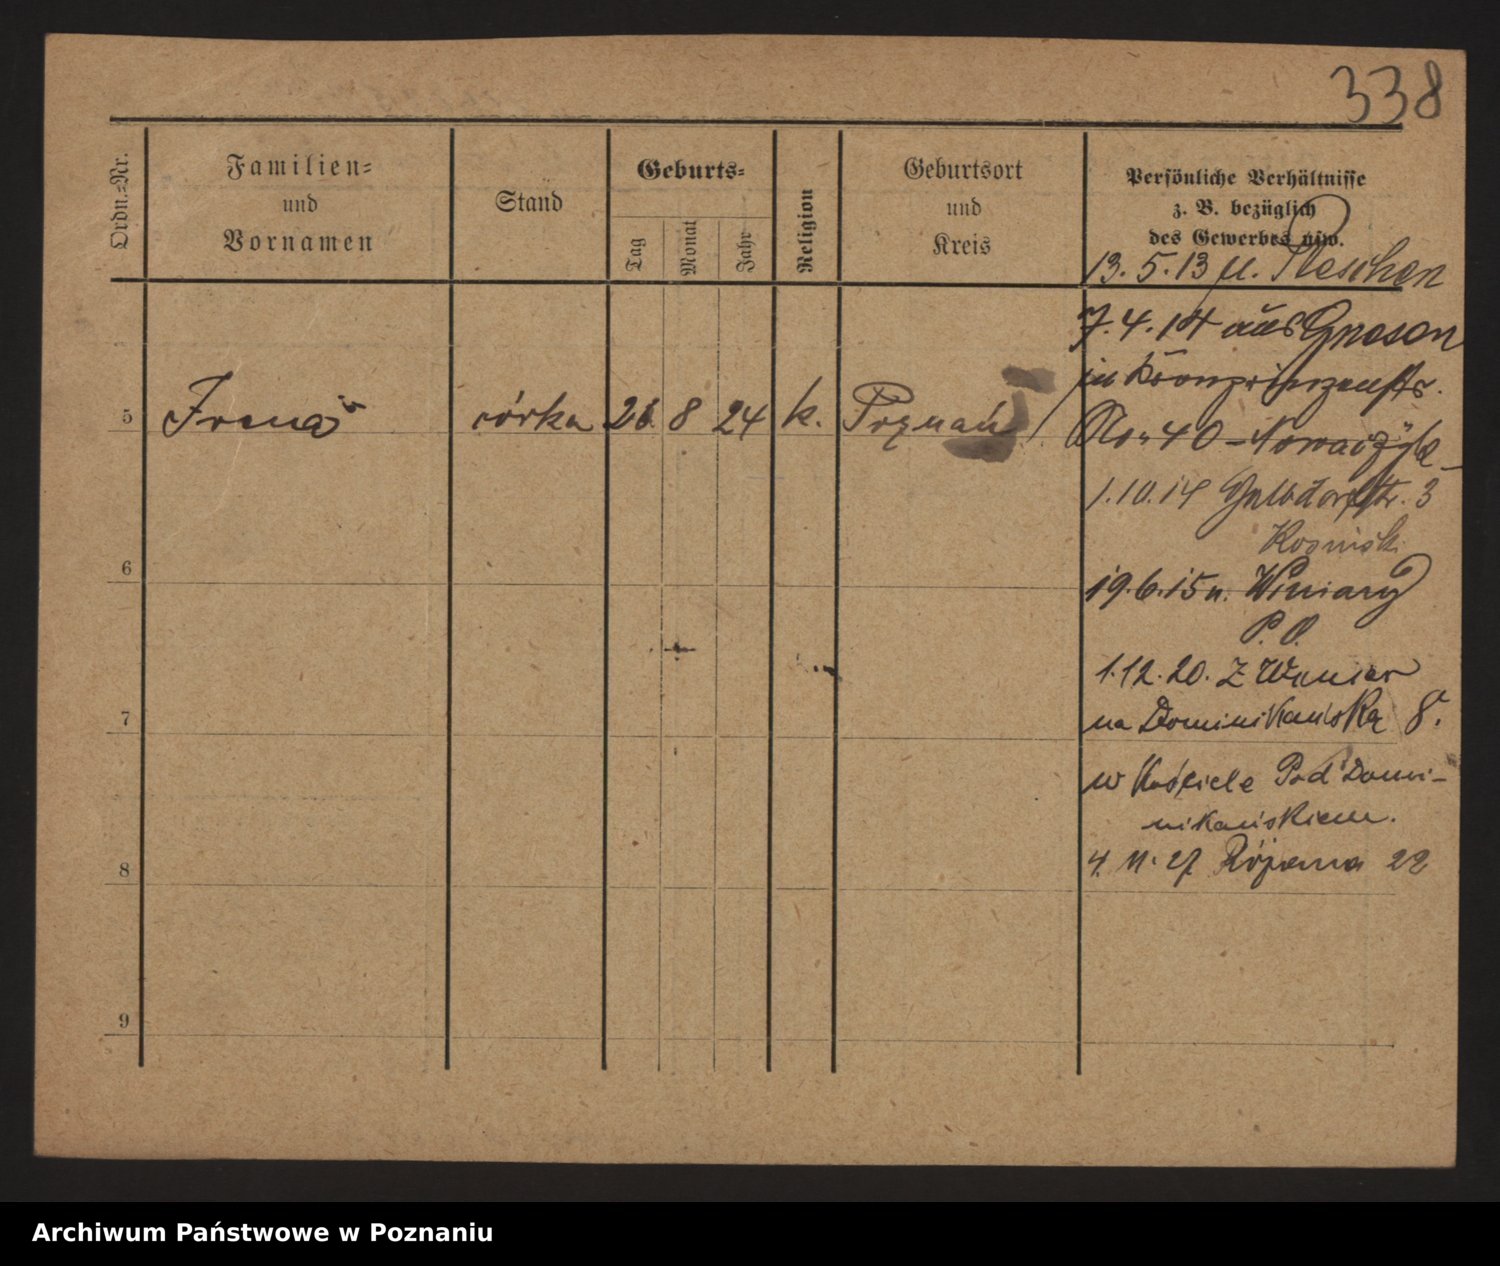 338
Ordn.-Nr.
Familien-
und
Vornamen
Stand
Geburts-
Tag
Monat
Jahr
Religion
Geburtsort
und
Kreis
Persönliche Verhältnisse
z. B. bezüglich
des Gewerbes usw.
13. 5. 13 n. Pleschen
7. 4. 14 aus Gnesen
in Kronprinzenstr.
No. 40 - Nowaczyk
5 Irena córka 26 8 24 k. Poznań
1. 10. 14 str. 3
6
19. 6. 15 n. Winiary
P. O.
1. 12. 20. z Winiar
7
na Dominikańską 8.
w Kościele Pod Domi-
nikańskiem.
8
4. 11. 27 Różana 22
9
Archiwum Państwowe w Poznaniu